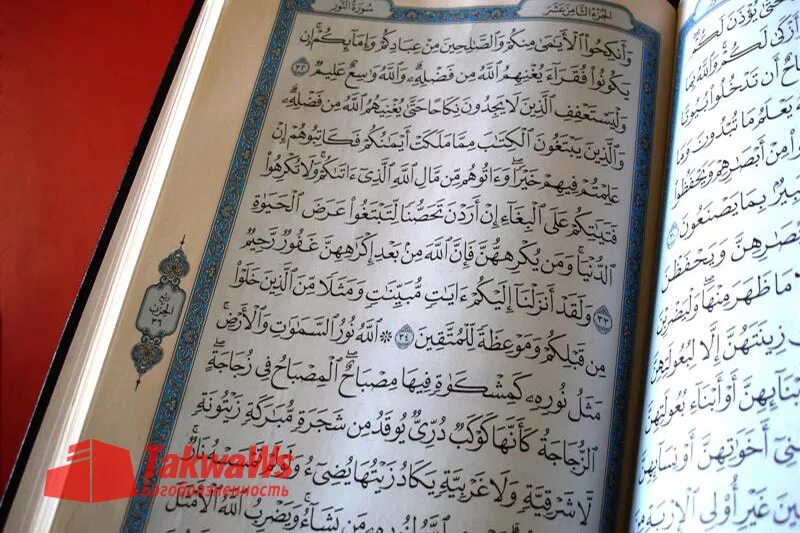 حَتَّىٰ يُؤْذَنَ لَكُمْ
أَزْكَىٰ لَكُمْ وَٱللَّهُ بِمَا
أَن تَدْخُلُوا۟ بُيُوتًا
يَعْلَمُ مَا تُبْدُونَ وَمَا
مِنْ أَبْصَـٰرِهِمْ وَيَحْفَظُوا۟
بِمَا يَصْنَعُونَ ٣٠
وَيَحْفَظْنَ
مَا ظَهَرَ مِنْهَا وَلْيَضْرِبْنَ
زِينَتَهُنَّ إِلَّا لِبُعُولَتِهِنَّ
أَوْ أَبْنَآءِ بُعُولَتِهِنَّ
أَخَوَٰتِهِنَّ أَوْ نِسَآئِهِنَّ
غَيْرِ أُو۟لِى ٱلْإِرْبَةِ مِنَ
الجزء الثامن عشر
سورة النور
وَأَنكِحُوا۟ ٱلْأَيَـٰمَىٰ مِنكُمْ وَٱلصَّـٰلِحِينَ مِنْ عِبَادِكُمْ وَإِمَآئِكُمْ إِن
يَكُونُوا۟ فُقَرَآءَ يُغْنِهِمُ ٱللَّهُ مِن فَضْلِهِۦ وَٱللَّهُ وَٰسِعٌ عَلِيمٌ ٣٢
وَلْيَسْتَعْفِفِ ٱلَّذِينَ لَا يَجِدُونَ نِكَاحًا حَتَّىٰ يُغْنِيَهُمُ ٱللَّهُ مِن فَضْلِهِۦ
وَٱلَّذِينَ يَبْتَغُونَ ٱلْكِتَـٰبَ مِمَّا مَلَكَتْ أَيْمَـٰنُكُمْ فَكَاتِبُوهُمْ إِنْ
عَلِمْتُمْ فِيهِمْ خَيْرًا وَءَاتُوهُم مِّن مَّالِ ٱللَّهِ ٱلَّذِىٓ ءَاتَىٰكُمْ وَلَا تُكْرِهُوا۟
فَتَيَـٰتِكُمْ عَلَى ٱلْبِغَآءِ إِنْ أَرَدْنَ تَحَصُّنًا لِّتَبْتَغُوا۟ عَرَضَ ٱلْحَيَوٰةِ
ٱلدُّنْيَا وَمَن يُكْرِههُّنَّ فَإِنَّ ٱللَّهَ مِنۢ بَعْدِ إِكْرَٰهِهِنَّ غَفُورٌ رَّحِيمٌ
٣٣ وَلَقَدْ أَنزَلْنَآ إِلَيْكُمْ ءَايَـٰتٍ مُّبَيِّنَـٰتٍ وَمَثَلًا مِّنَ ٱلَّذِينَ خَلَوْا۟
مِن قَبْلِكُمْ وَمَوْعِظَةً لِّلْمُتَّقِينَ ٣٤ ۞ ٱللَّهُ نُورُ ٱلسَّمَـٰوَٰتِ وَٱلْأَرْضِ
مَثَلُ نُورِهِۦ كَمِشْكَوٰةٍ فِيهَا مِصْبَاحٌ ٱلْمِصْبَاحُ فِى زُجَاجَةٍ
ٱلزُّجَاجَةُ كَأَنَّهَا كَوْكَبٌ دُرِّىٌّ يُوقَدُ مِن شَجَرَةٍ مُّبَـٰرَكَةٍ زَيْتُونَةٍ
لَّا شَرْقِيَّةٍ وَلَا غَرْبِيَّةٍ يَكَادُ زَيْتُهَا يُضِىٓءُ وَلَوْ لَمْ تَمْسَسْهُ نَارٌ
ٱللَّهُ لِنُورِهِۦ مَن يَشَآءُ وَيَضْرِبُ ٱللَّهُ ٱلْأَمْثَـٰلَ
ربع
الحزب
٣٦
TakwaWs
Богобоязненность